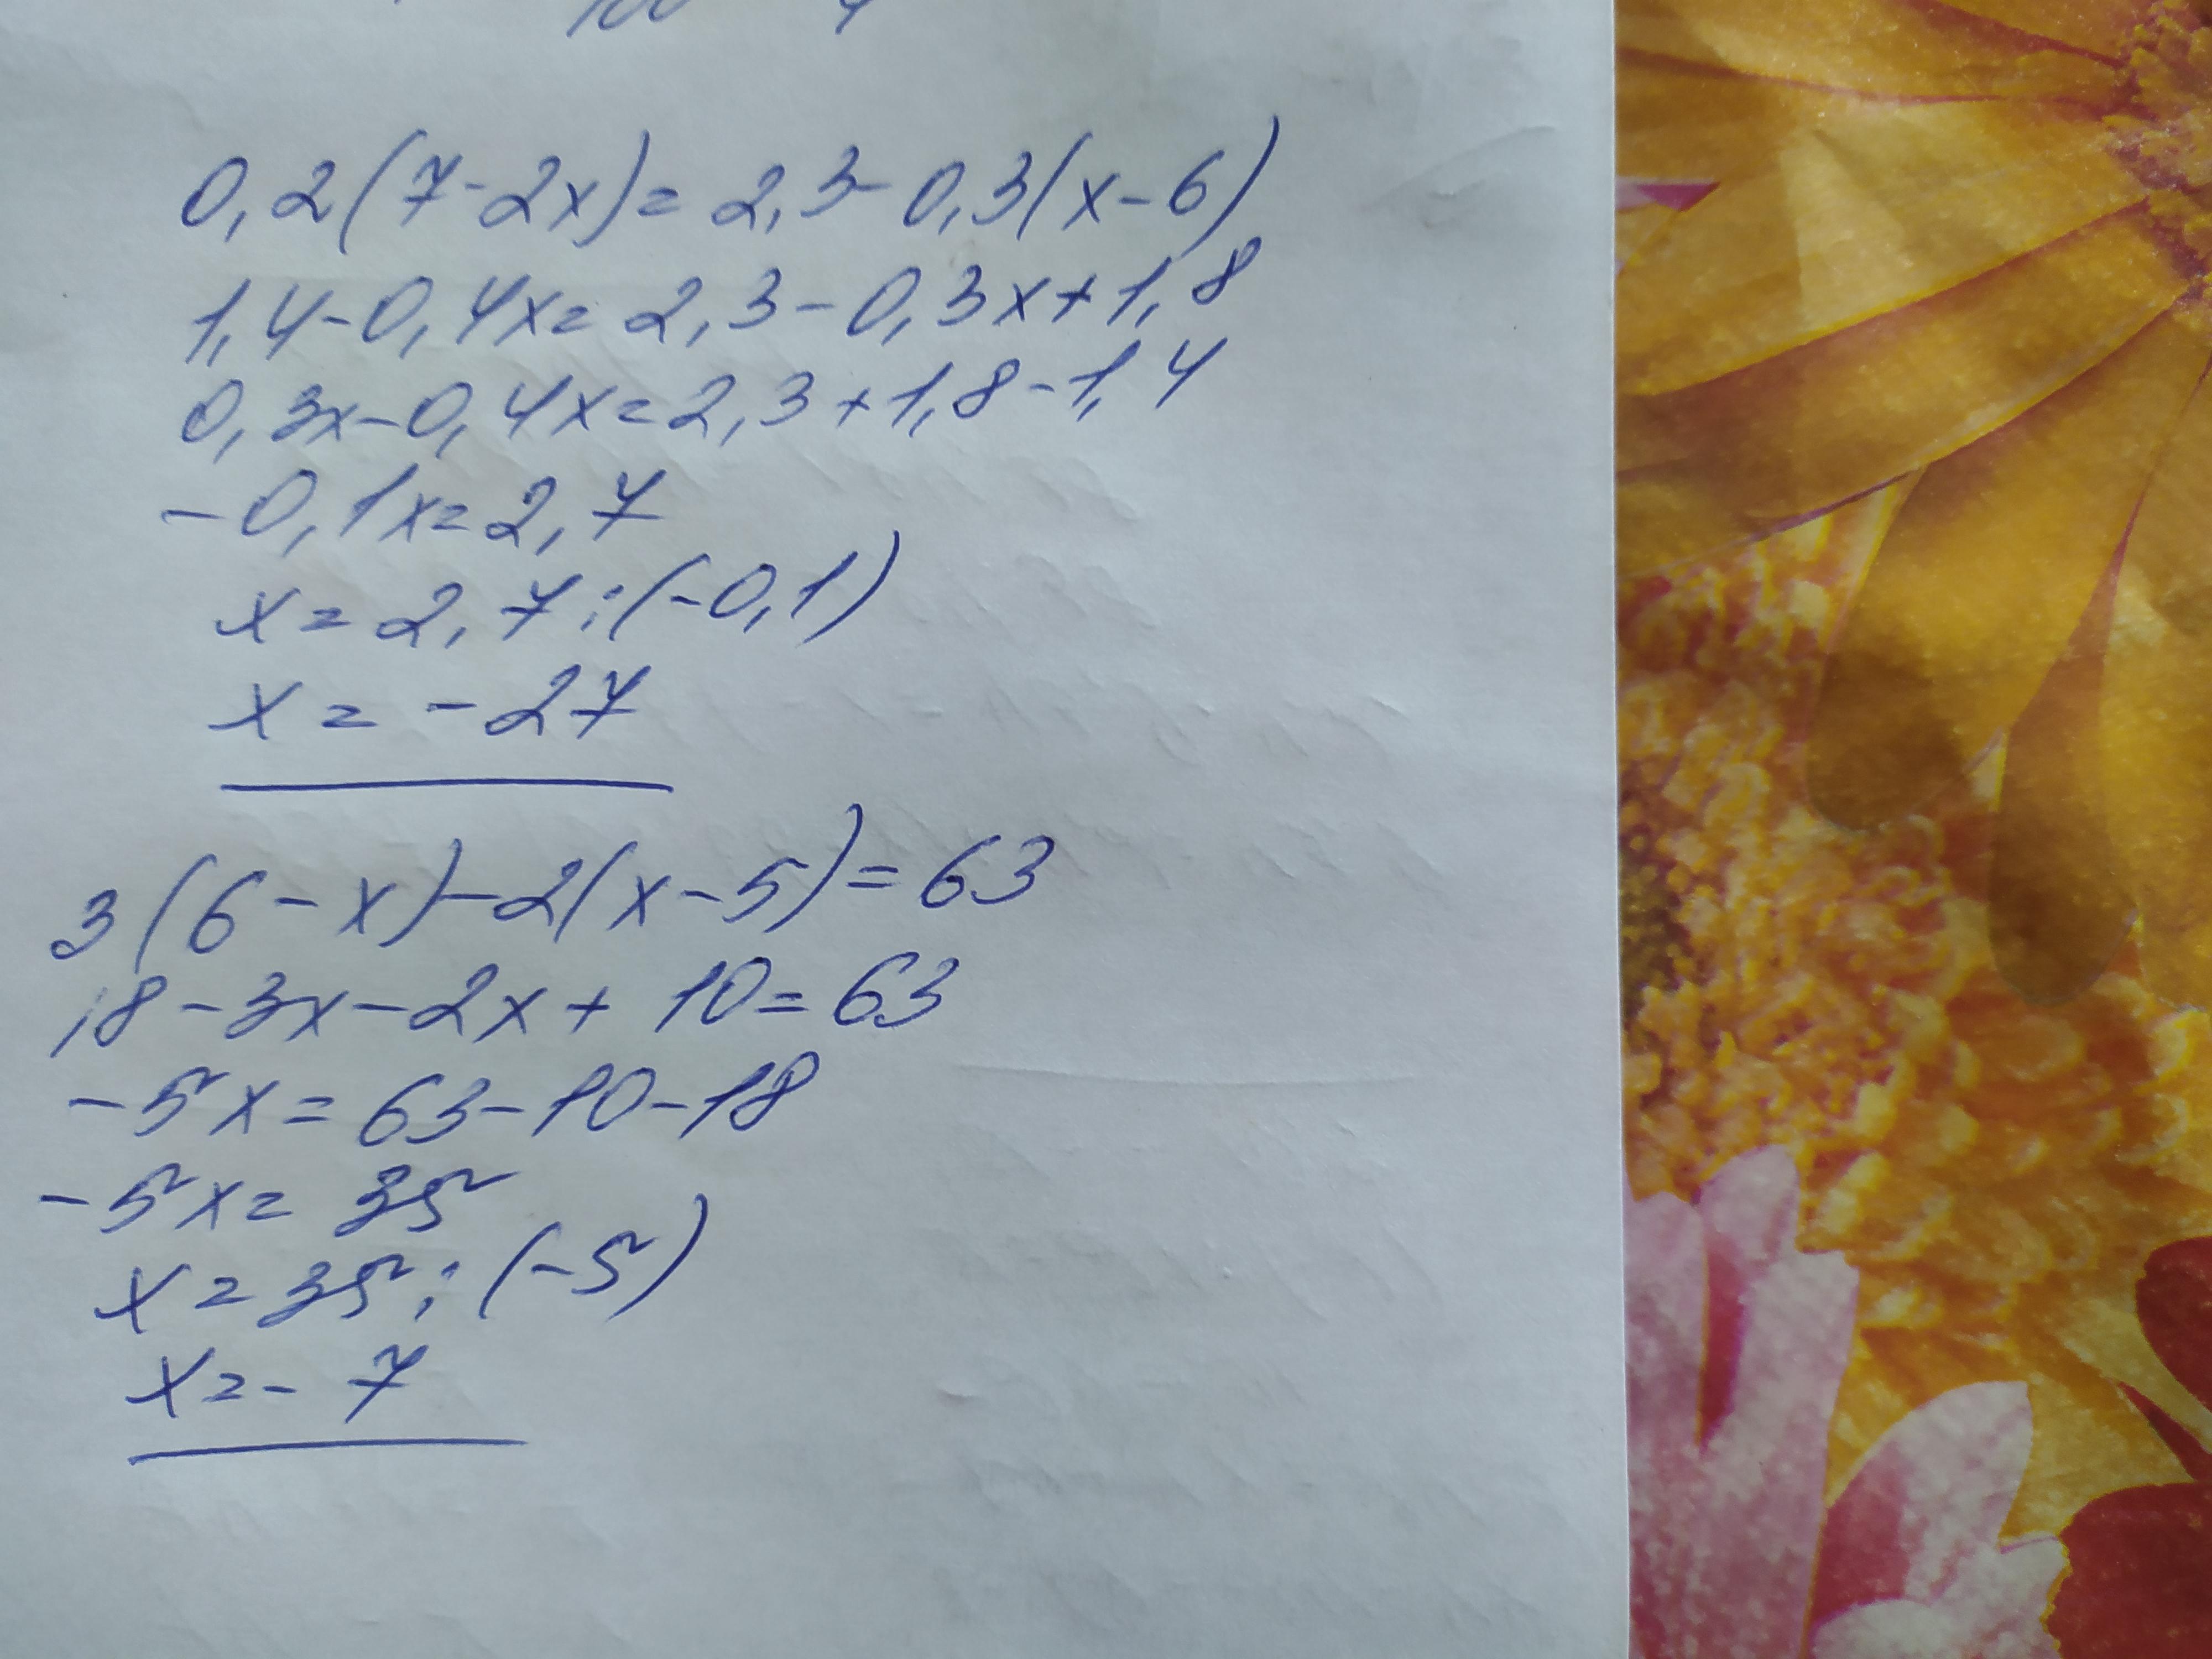 0,2(7-2x)=2,3-0,3(x-6)
1,4-0,4x=2,3-0,3x+1,8
0,3x-0,4x=2,3+1,8-1,4
-0,1x=2,7
x=2,7:(-0,1)
x=-27
3(6-x)-2(x-5)=63
18-3x-2x+10=63
-5x=63-10-18
-5x=35
x=35:(-5)
x=-7